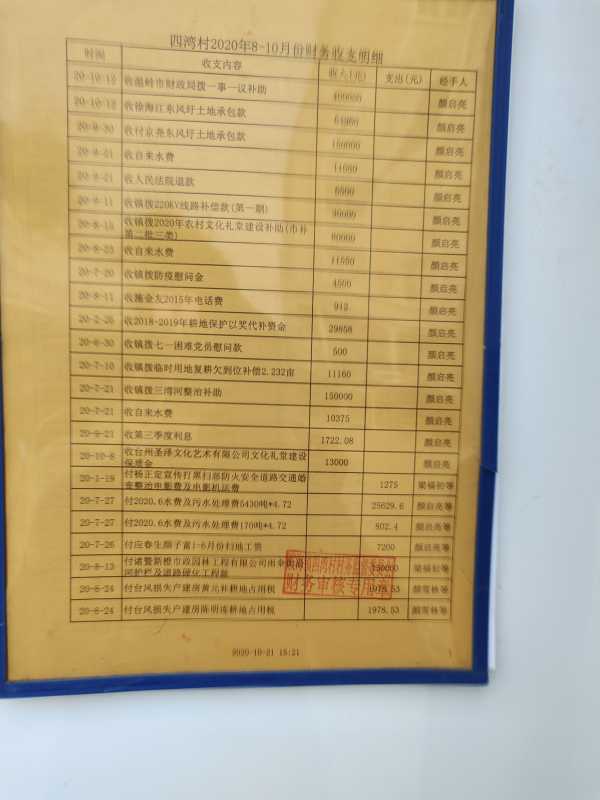 四湾村2020年8-10月份财务收支明细
时间 收支内容 收入(元) 支出(元) 经手人
20-10-12 收温岭市财政局拨一事一议补助 400000 颜启亮
20-10-12 收徐海江东风圩土地承包款 颜启亮
20-9-30 收付京尧东风圩土地承包款 150000 颜启亮
20-9-21 收自来水费 颜启亮
20-9-21 收人民法院退款 颜启亮
收镇拨220KV线路补偿款(第一期) 颜启亮
收镇拨2020年农村文化礼堂建设补助(市补
第二批三类) 80000 颜启亮
收自来水费 11550 颜启亮
20-7-20 收镇拨防疫慰问金 4500 颜启亮
20-8-11 收施金友2015年电话费 942 颜启亮
收2018-2019年耕地保护以奖代补资金 29858 颜启亮
20-6-30 收镇拨七一困难党员慰问款 500 颜启亮
20-7-10 收镇拨临时用地复耕欠到位补偿2.232亩 11160 颜启亮
20-7-21 收镇拨三湾河整治补助 150000 颜启亮
20-7-21 收自来水费 10375 颜启亮
20-9-21 收第三季度利息 1722.08 颜启亮
20-10-8 收台州圣泽文化艺术有限公司文化礼堂建设
保质金 13000 颜启亮
20-1-19 付杨正定宣传打黑扫恶防火安全道路交通婚
丧整治电影费及电影机运费 1275 梁福初等
20-7-27 付2020.6水费及污水处理费5430吨*4.72 25629.6 颜启亮等
20-7-27 付2020.6水费及污水处理费170吨*4.72 802.4 颜启亮等
20-7-26 付应春生颜子富1-6月份扫地工资 7200 颜启亮等
20-8-13 付诸暨新橙市政园林工程有限公司雨伞街沿
河护栏及道路硬化工程款 150000 梁福初等
20-8-24 付台风损失户建房黄元补耕地占用税 1978.53 颜雪核等
20-8-24 付台风损失户建房陈明连耕地占用税 1978.53 颜雪核等
财务审核专用章
2020-10-21 15:21
1